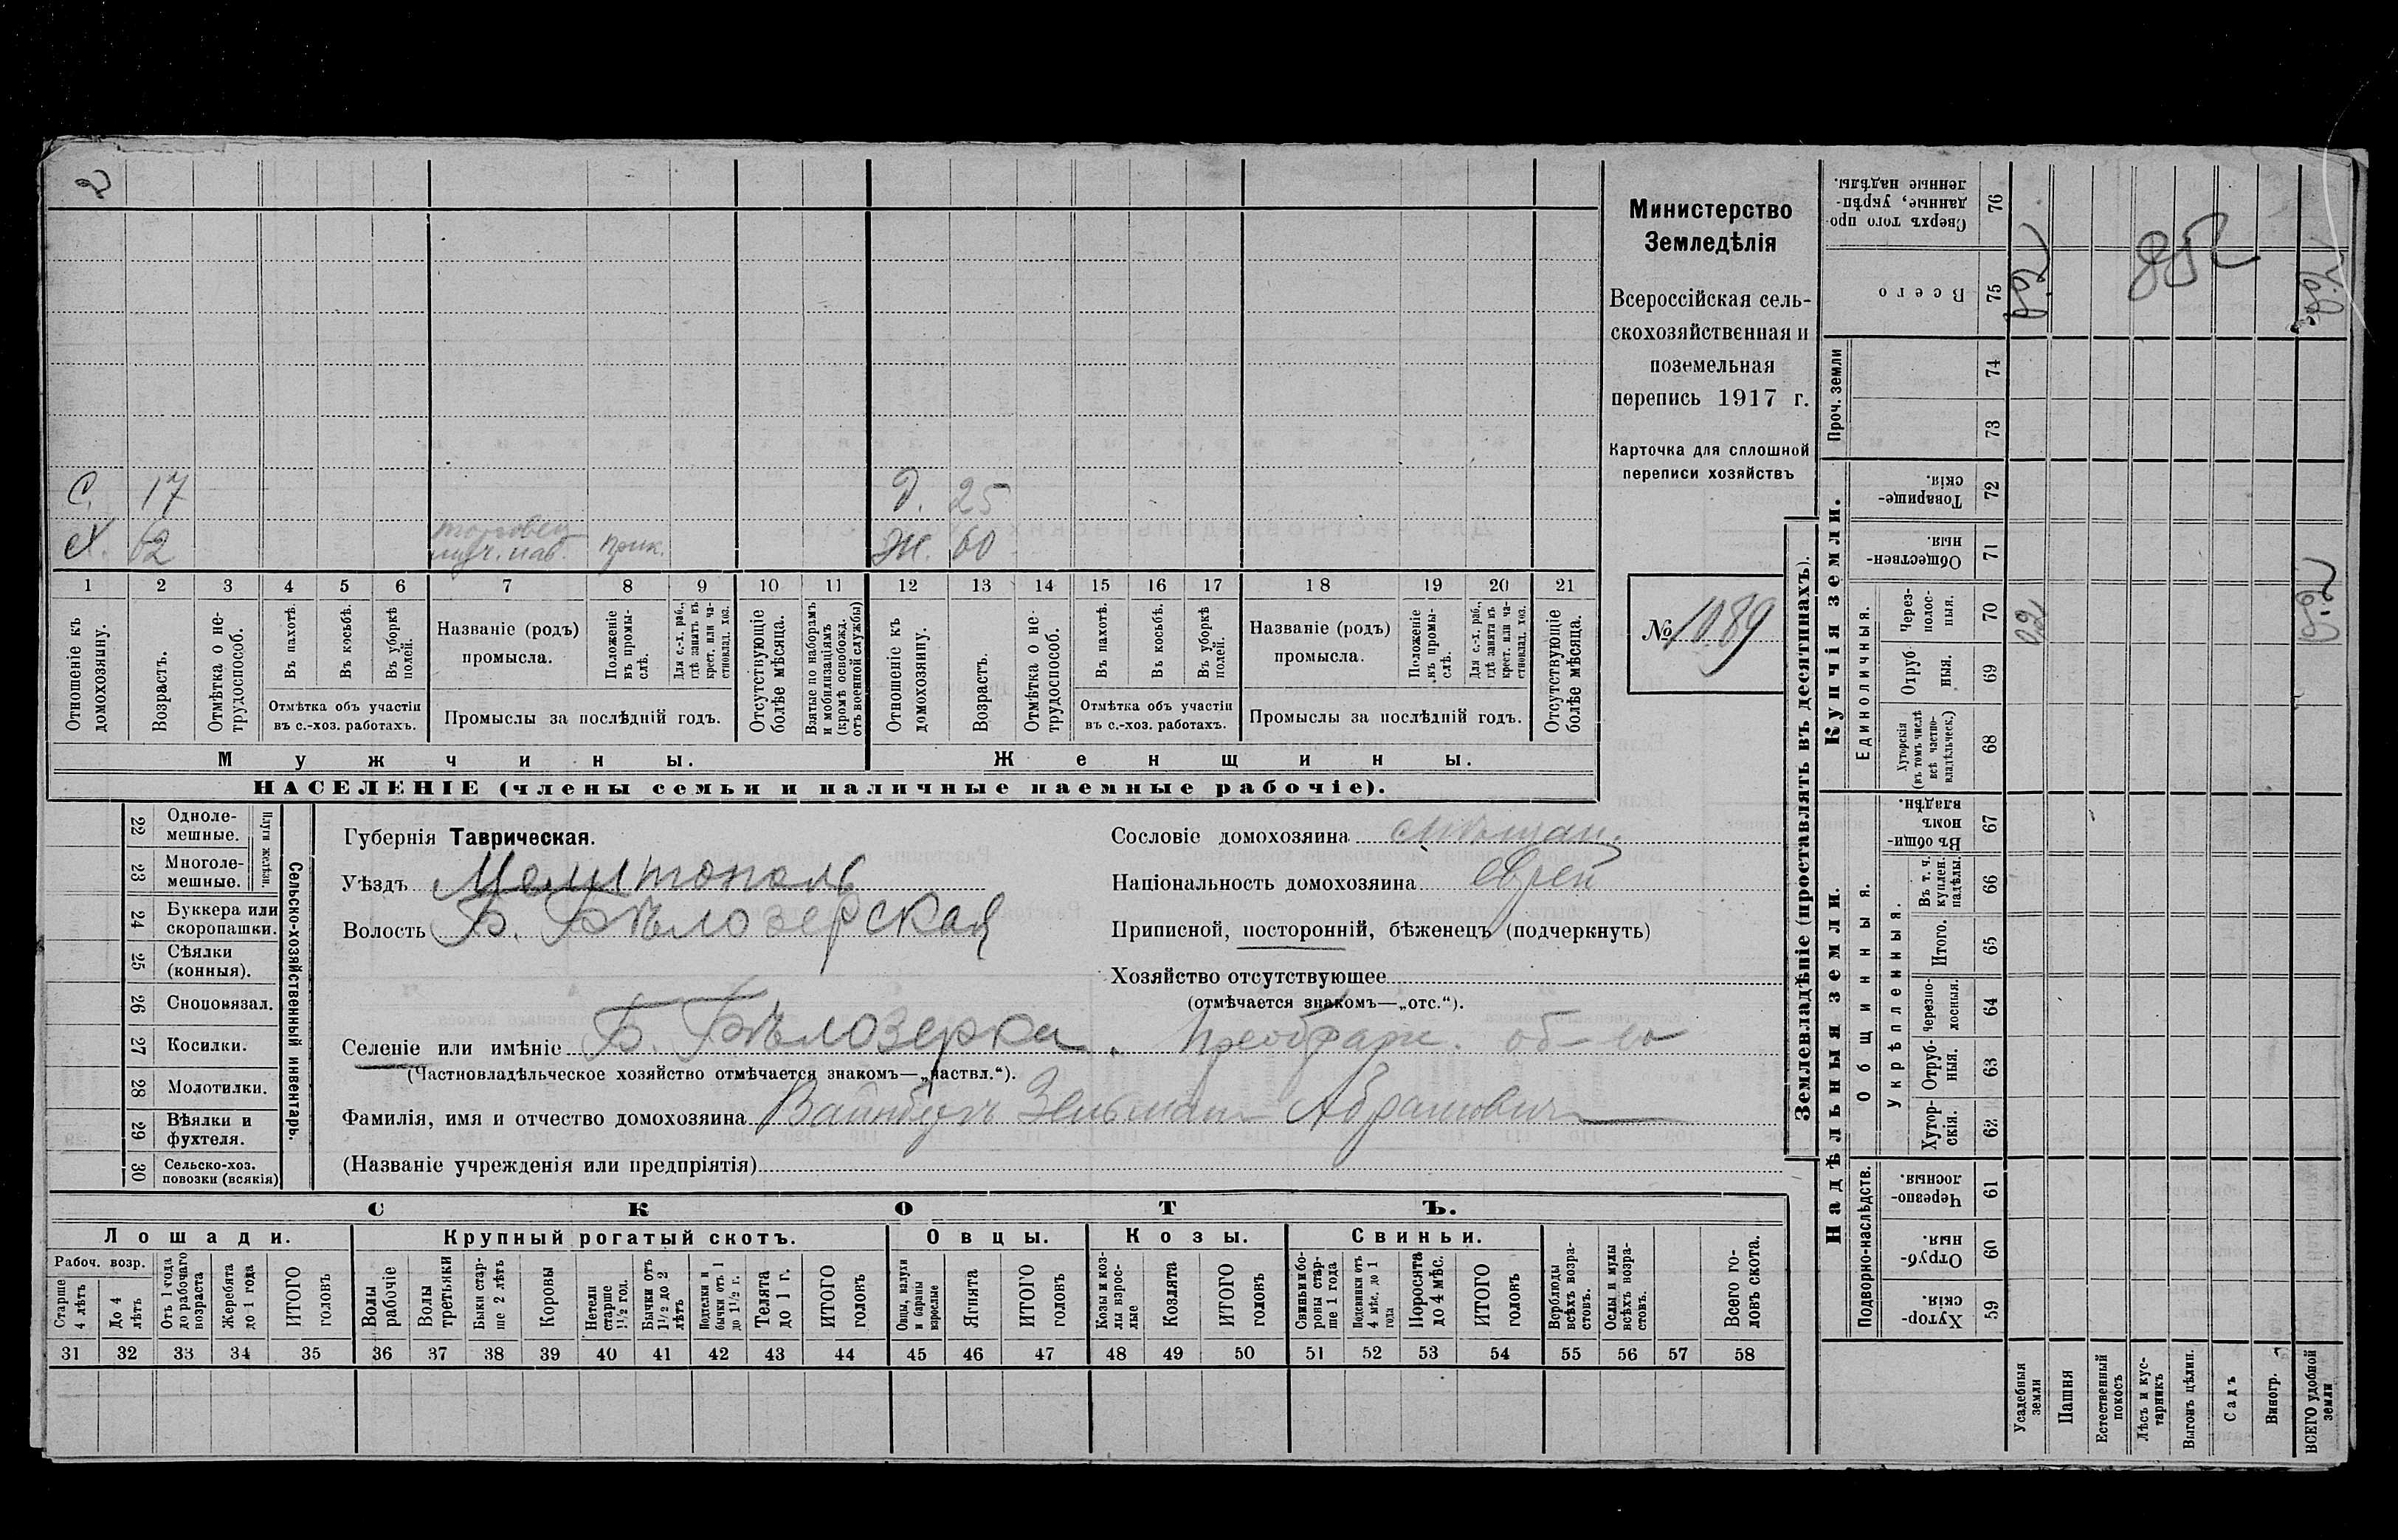 2
С. 17 Д. 25
Х. 62 торговец прик. Ж. 60
1 2 3 4 5 6 7 8 9 10 11 12 13 14 15 16 17 18 19 20 21
Отношеніе къ домохозяину.
Возрастъ.
Отмѣтка о не-
трудоспособ.
Въ пахотѣ.
Въ косьбѣ.
Въ уборкѣ полей.
Отмѣтка объ участіи
въ с.-хоз. работахъ.
Названіе (родъ)
промысла.
Положеніе
въ промы-
слѣ.
Для с.-х. раб.,
гдѣ занятъ въ
крест. или ча-
стновлад. хоз.
Промыслы за послѣдній годъ.
Отсутствующіе
болѣе мѣсяца.
Взятые по наборамъ
и мобилизаціямъ
(кромѣ освобожд.
отъ военной службы)
Отношеніе къ
домохозяину.
Возрастъ.
Отмѣтка о не-
трудоспособ.
Въ пахотѣ.
Въ косьбѣ.
Въ уборкѣ
полей.
Отмѣтка объ участіи
въ с.-хоз. работахъ.
Названіе (родъ)
промысла.
Положеніе
въ промы-
слѣ.
Для с.-х. раб.,
гдѣ занята въ
крест. или ча-
стновлад. хоз.
Промыслы за послѣдній годъ.
Отсутствующіе
болѣе мѣсяца.
Мужчины.
Женщины.
НАСЕЛЕНІЕ (члены семьи и наличные наемные рабочіе).
Министерство
Земледѣлія
Всероссійская сель-
скохозяйственная и
поземельная
перепись 1917 г.
Карточка для сплошной
переписи хозяйствъ
№ 1089
22 Одноле-
мешные.
23 Многоле-
мешные.
Плуги желѣзн.
24 Буккера или
скоропашки.
25 Сѣялки
(конныя).
26 Сноповязал.
27 Косилки.
28 Молотилки.
29 Вѣялки и
фухтеля.
30 Сельско-хоз.
повозки (всякія)
Сельско-хозяйственный инвентарь.
Губернія Таврическая.
Уѣздъ Мелитополь
Волость Б. Бѣлозерская
Селеніе или имѣніе Б. Бѣлозерка, Преображ. об-во
(Частновладѣльческое хозяйство отмѣчается знакомъ—„частвл.“).
Фамилія, имя и отчество домохозяина Зельман Абрамович
(Названіе учрежденія или предпріятія)
Сословіе домохозяина мѣщан.
Національность домохозяина еврей
Приписной, посторонній, бѣженецъ (подчеркнуть)
Хозяйство отсутствующее
(отмѣчается знакомъ—„отс.“).
СКОТЪ.
Лошади.
Рабоч. возр.
Старше
4 лѣтъ
До 4
лѣтъ
Отъ 1 года
до рабочаго
возраста
Жеребята
до 1 года
ИТОГО
головъ
Крупный рогатый скотъ.
Волы
рабочіе
Волы
третьяки
Быки стар-
ше 2 лѣтъ
Коровы
Нетели
старше
1½ год.
Бычки отъ
1½ до 2
лѣтъ
Подтелки и
бычки отъ 1
до 1½ г.
Телята
до 1 г.
ИТОГО
головъ
Овцы.
Овцы, валухи
и бараны
взрослые
Ягнята
ИТОГО
головъ
Козы.
Козы и коз-
лы взрос-
лые
Козлята
ИТОГО
головъ
Свиньи.
Свиньи и бо-
ровы стар-
ше 1 года
Подсвинки отъ
4 мѣс. до 1
года
Поросята
до 4 мѣс.
ИТОГО
головъ
Верблюды
всѣхъ возра-
стовъ.
Ослы и мулы
всѣхъ возра-
стовъ.
Всего го-
ловъ скота.
31 32 33 34 35 36 37 38 39 40 41 42 43 44 45 46 47 48 49 50 51 52 53 54 55 56 57 58
Землевладѣніе (проставлять въ десятинахъ).
Купчія земли.
Надѣльныя земли.
Сверхъ того про-
данные, укрѣп-
ленные надѣлы. 76
Всего 75
Проч. земли 74
73
Товарище-
скія. 72
Обществен-
ныя. 71
Единоличныя.
Через-
полос-
ныя. 70
Отруб-
ныя. 69
Хуторскія
(въ томъ числѣ
всѣ частно-
владѣльческ.) 68
Общинныя.
Въ общи-
номъ
владѣн. 67
Укрѣпленныя.
Въ т. ч.
куплен.
надѣлы. 66
Итого. 65
Черезпо-
лосныя. 64
Отруб-
ныя. 63
Хутор-
скія. 62
Подворно-наслѣдств.
Черезпо-
лосныя. 61
Отруб-
ныя. 60
Хутор-
скія. 59
Усадебныя
земли
Пашня
Естественный
покосъ
Лѣсъ и кус-
тарникъ
Выгонъ цѣлин.
Садъ
Виногр.
ВСЕГО удобной
земли